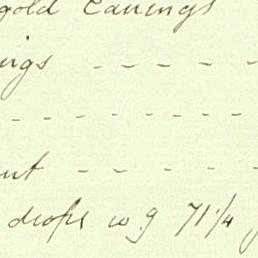 gold Earrings
ings - - - -
- - - - - - - -
ent - - - -
drops w.g 71 1/4